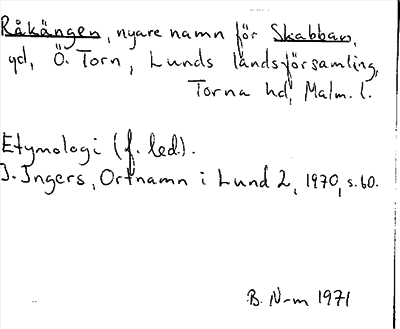 Råkängen, nyare namn för Skabban,
gd, Ö. Torn, Lunds landsförsamling,
Torna hd, Malm. l.
Etymologi (f. led.).
I. Ingers, Ortnamn i Lund 2, 1970, s. 60.
B. N-m 1971